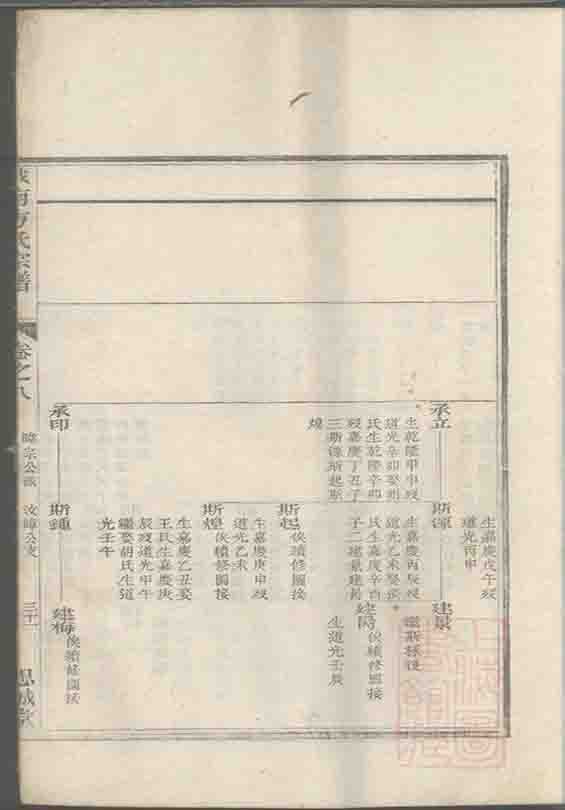 生嘉慶戊午歿
道光丙申
承立
生乾隆甲申歿
道光辛卯娶胡
氏生乾隆辛卯
歿嘉慶丁丑子
三斯源斯起斯
煌
斯源
生嘉慶丙辰歿
道光乙未娶侯
氏生嘉慶辛酉
子二建景建陽
建景
繼斯椽後
建陽
俟續修圖接
生道光壬辰
斯起
俟續修圖接
生嘉慶庚申歿
道光乙未
斯煌
俟續修圖接
生嘉慶乙丑娶
王氏生嘉慶庚
辰歿道光甲午
繼娶胡氏生道
光壬午
承印
斯鍾
建梅
俟續修圖接
方氏宗譜
卷之八
暐宗公派 汝暲公支
三十一
思誠堂